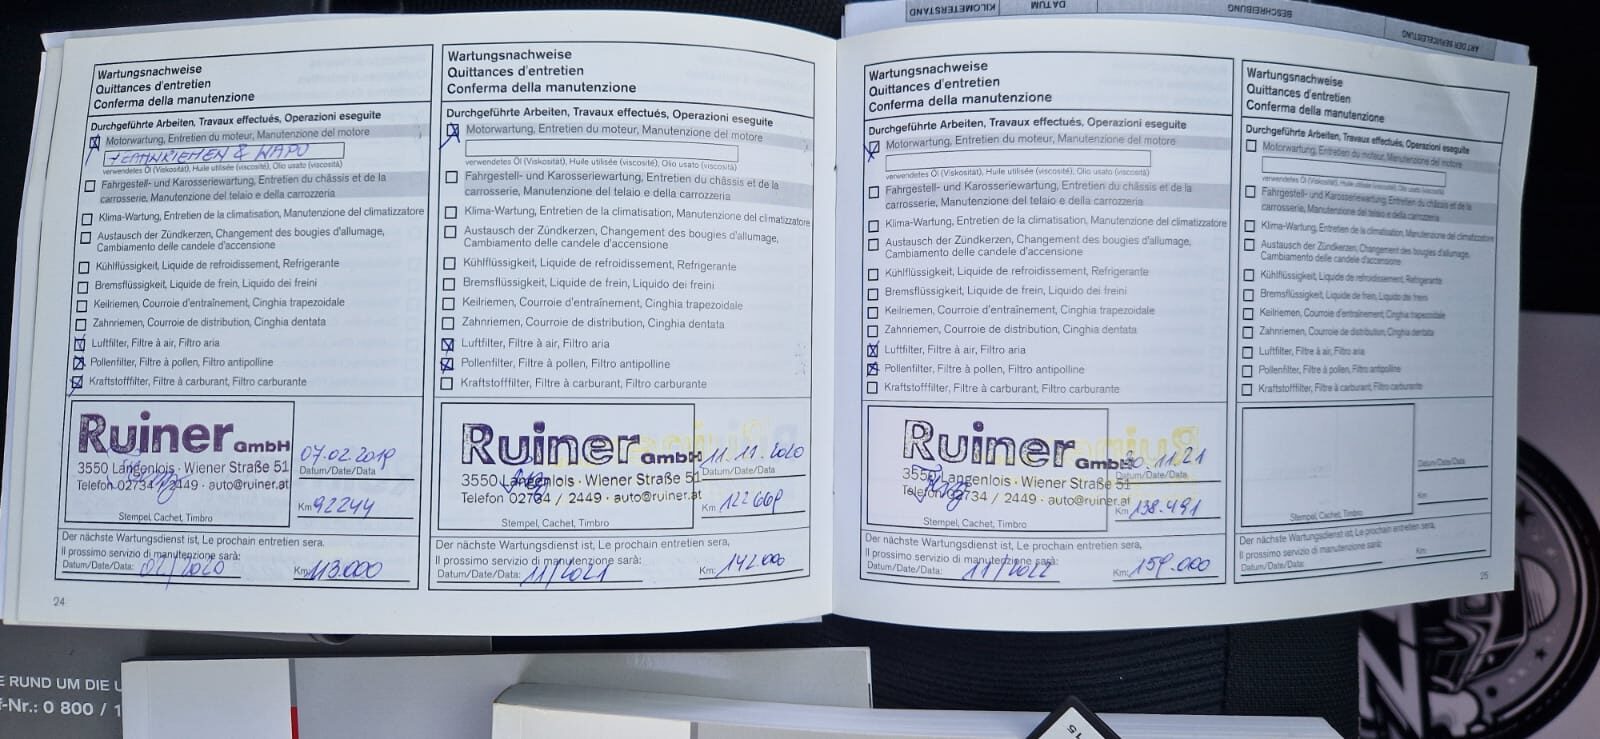 KILOMETERSTAND
DATUM
BESCHREIBUNG
ART DER SERVICELEISTUNG
Wartungsnachweise
Quittances d'entretien
Conferma della manutenzione
Durchgeführte Arbeiten, Travaux effectués, Operazioni eseguite
Motorwartung, Entretien du moteur, Manutenzione del motore
+ZAHNRIEMEN & WAPU
verwendetes Öl (Viskosität), Huile utilisée (viscosité), Olio usato (viscosità)
Fahrgestell- und Karosseriewartung, Entretien du châssis et de la
carrosserie, Manutenzione del telaio e della carrozzeria
Klima-Wartung, Entretien de la climatisation, Manutenzione del climatizzatore
Austausch der Zündkerzen, Changement des bougies d'allumage,
Cambiamento delle candele d'accensione
Kühlflüssigkeit, Liquide de refroidissement, Refrigerante
Bremsflüssigkeit, Liquide de frein, Liquido dei freini
Keilriemen, Courroie d'entraînement, Cinghia trapezoidale
Zahnriemen, Courroie de distribution, Cinghia dentata
Luftfilter, Filtre à air, Filtro aria
Pollenfilter, Filtre à pollen, Filtro antipolline
Kraftstofffilter, Filtre à carburant, Filtro carburante
Ruiner GmbH
3550 Langenlois · Wiener Straße 51
Telefon 02734 / 2449 · auto@ruiner.at
Stempel, Cachet, Timbro
07.02.2019
Datum/Date/Data
Km 92244
Der nächste Wartungsdienst ist, Le prochain entretien sera,
Il prossimo servizio di manutenzione sarà:
Datum/Date/Data: 02/2020
Km: 113.000
24
Wartungsnachweise
Quittances d'entretien
Conferma della manutenzione
Durchgeführte Arbeiten, Travaux effectués, Operazioni eseguite
Motorwartung, Entretien du moteur, Manutenzione del motore
verwendetes Öl (Viskosität), Huile utilisée (viscosité), Olio usato (viscosità)
Fahrgestell- und Karosseriewartung, Entretien du châssis et de la
carrosserie, Manutenzione del telaio e della carrozzeria
Klima-Wartung, Entretien de la climatisation, Manutenzione del climatizzatore
Austausch der Zündkerzen, Changement des bougies d'allumage,
Cambiamento delle candele d'accensione
Kühlflüssigkeit, Liquide de refroidissement, Refrigerante
Bremsflüssigkeit, Liquide de frein, Liquido dei freini
Keilriemen, Courroie d'entraînement, Cinghia trapezoidale
Zahnriemen, Courroie de distribution, Cinghia dentata
Luftfilter, Filtre à air, Filtro aria
Pollenfilter, Filtre à pollen, Filtro antipolline
Kraftstofffilter, Filtre à carburant, Filtro carburante
Ruiner GmbH
3550 Langenlois · Wiener Straße 51
Telefon 02734 / 2449 · auto@ruiner.at
Stempel, Cachet, Timbro
11.11.2020
Datum/Date/Data
Km 122669
Der nächste Wartungsdienst ist, Le prochain entretien sera,
Il prossimo servizio di manutenzione sarà:
Datum/Date/Data: 11/2021
Km: 142.000
Wartungsnachweise
Quittances d'entretien
Conferma della manutenzione
Durchgeführte Arbeiten, Travaux effectués, Operazioni eseguite
Motorwartung, Entretien du moteur, Manutenzione del motore
verwendetes Öl (Viskosität), Huile utilisée (viscosité), Olio usato (viscosità)
Fahrgestell- und Karosseriewartung, Entretien du châssis et de la
carrosserie, Manutenzione del telaio e della carrozzeria
Klima-Wartung, Entretien de la climatisation, Manutenzione del climatizzatore
Austausch der Zündkerzen, Changement des bougies d'allumage,
Cambiamento delle candele d'accensione
Kühlflüssigkeit, Liquide de refroidissement, Refrigerante
Bremsflüssigkeit, Liquide de frein, Liquido dei freini
Keilriemen, Courroie d'entraînement, Cinghia trapezoidale
Zahnriemen, Courroie de distribution, Cinghia dentata
Luftfilter, Filtre à air, Filtro aria
Pollenfilter, Filtre à pollen, Filtro antipolline
Kraftstofffilter, Filtre à carburant, Filtro carburante
Ruiner GmbH
3550 Langenlois · Wiener Straße 51
Telefon 02734 / 2449 · auto@ruiner.at
Stempel, Cachet, Timbro
30.11.21
Datum/Date/Data
Km 138.491
Der nächste Wartungsdienst ist, Le prochain entretien sera,
Il prossimo servizio di manutenzione sarà:
Datum/Date/Data: 11/2022
Km: 159.000
Wartungsnachweise
Quittances d'entretien
Conferma della manutenzione
Durchgeführte Arbeiten, Travaux effectués, Operazioni eseguite
Motorwartung, Entretien du moteur, Manutenzione del motore
verwendetes Öl (Viskosität), Huile utilisée (viscosité), Olio usato (viscosità)
Fahrgestell- und Karosseriewartung, Entretien du châssis et de la
carrosserie, Manutenzione del telaio e della carrozzeria
Klima-Wartung, Entretien de la climatisation, Manutenzione del climatizzatore
Austausch der Zündkerzen, Changement des bougies d'allumage,
Cambiamento delle candele d'accensione
Kühlflüssigkeit, Liquide de refroidissement, Refrigerante
Bremsflüssigkeit, Liquide de frein, Liquido dei freini
Keilriemen, Courroie d'entraînement, Cinghia trapezoidale
Zahnriemen, Courroie de distribution, Cinghia dentata
Luftfilter, Filtre à air, Filtro aria
Pollenfilter, Filtre à pollen, Filtro antipolline
Kraftstofffilter, Filtre à carburant, Filtro carburante
Stempel, Cachet, Timbro
Datum/Date/Data
Km
Der nächste Wartungsdienst ist, Le prochain entretien sera,
Il prossimo servizio di manutenzione sarà:
Datum/Date/Data:
Km:
25
E RUND UM DIE U
f-Nr.: 0 800 / 1
15
N